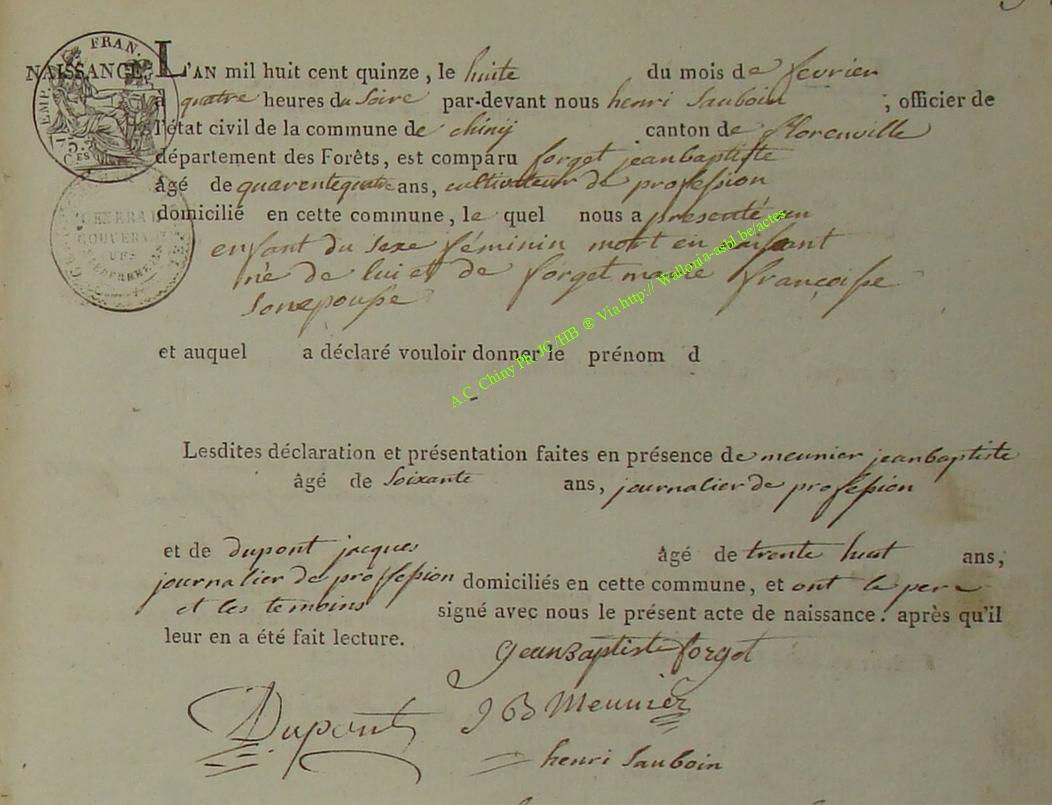 NAISSANCE. L'AN mil huit cent quinze, le huite du mois de fevrier
a quatre heures du Soire par-devant nous henri Sauboin ; officier de
l'état civil de la commune de chinij canton de florenville
département des Forêts, est comparu forget jeanbaptiste
âgé de quarentequatre ans, cultivateur de profession
domicilié en cette commune, le quel nous a presenté un
enfant du sexe féminin mort en naissant
né de lui et de forget marie françoise
son epouse
et auquel a déclaré vouloir donner le prénom d
Lesdites déclaration et présentation faites en présence de meunier jeanbaptiste
âgé de Soixante ans, journalier de profession
et de dupont jacques âgé de trente huit ans,
journalier de profession domiciliés en cette commune, et ont le pere
et les temoins signé avec nous le présent acte de naissance. après qu'il
leur en a été fait lecture.
jeanbaptiste forget
Dupont J B Meunier
henri Sauboin
EMP. FRAN.
75.
C.ES
GENERAL
GOUVERN
A.C. Chiny Ph JG /HB ® Via http:// Wallonia-asbl.be/actes